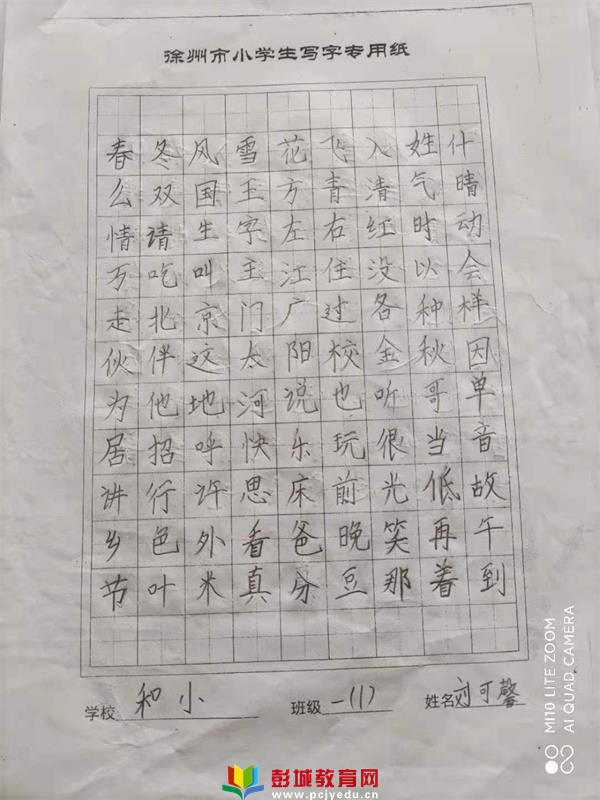 徐州市小学生写字专用纸
春冬风雪花飞入姓什
么双国王方青清气晴
情请生字左右红时动
万吃叫主江住没以会
走北京门广过各种样
伙伴这太阳校金秋因
为他地河说也听哥单
居招呼快乐玩很当音
讲行许思床前光低故
乡色外看爸晚笑再午
节叶米真分豆那着到
学校 和小 班级 一(1) 姓名 刘可馨
MI10 LITE ZOOM
AI QUAD CAMERA
彭城教育网
www.pcjyedu.cn